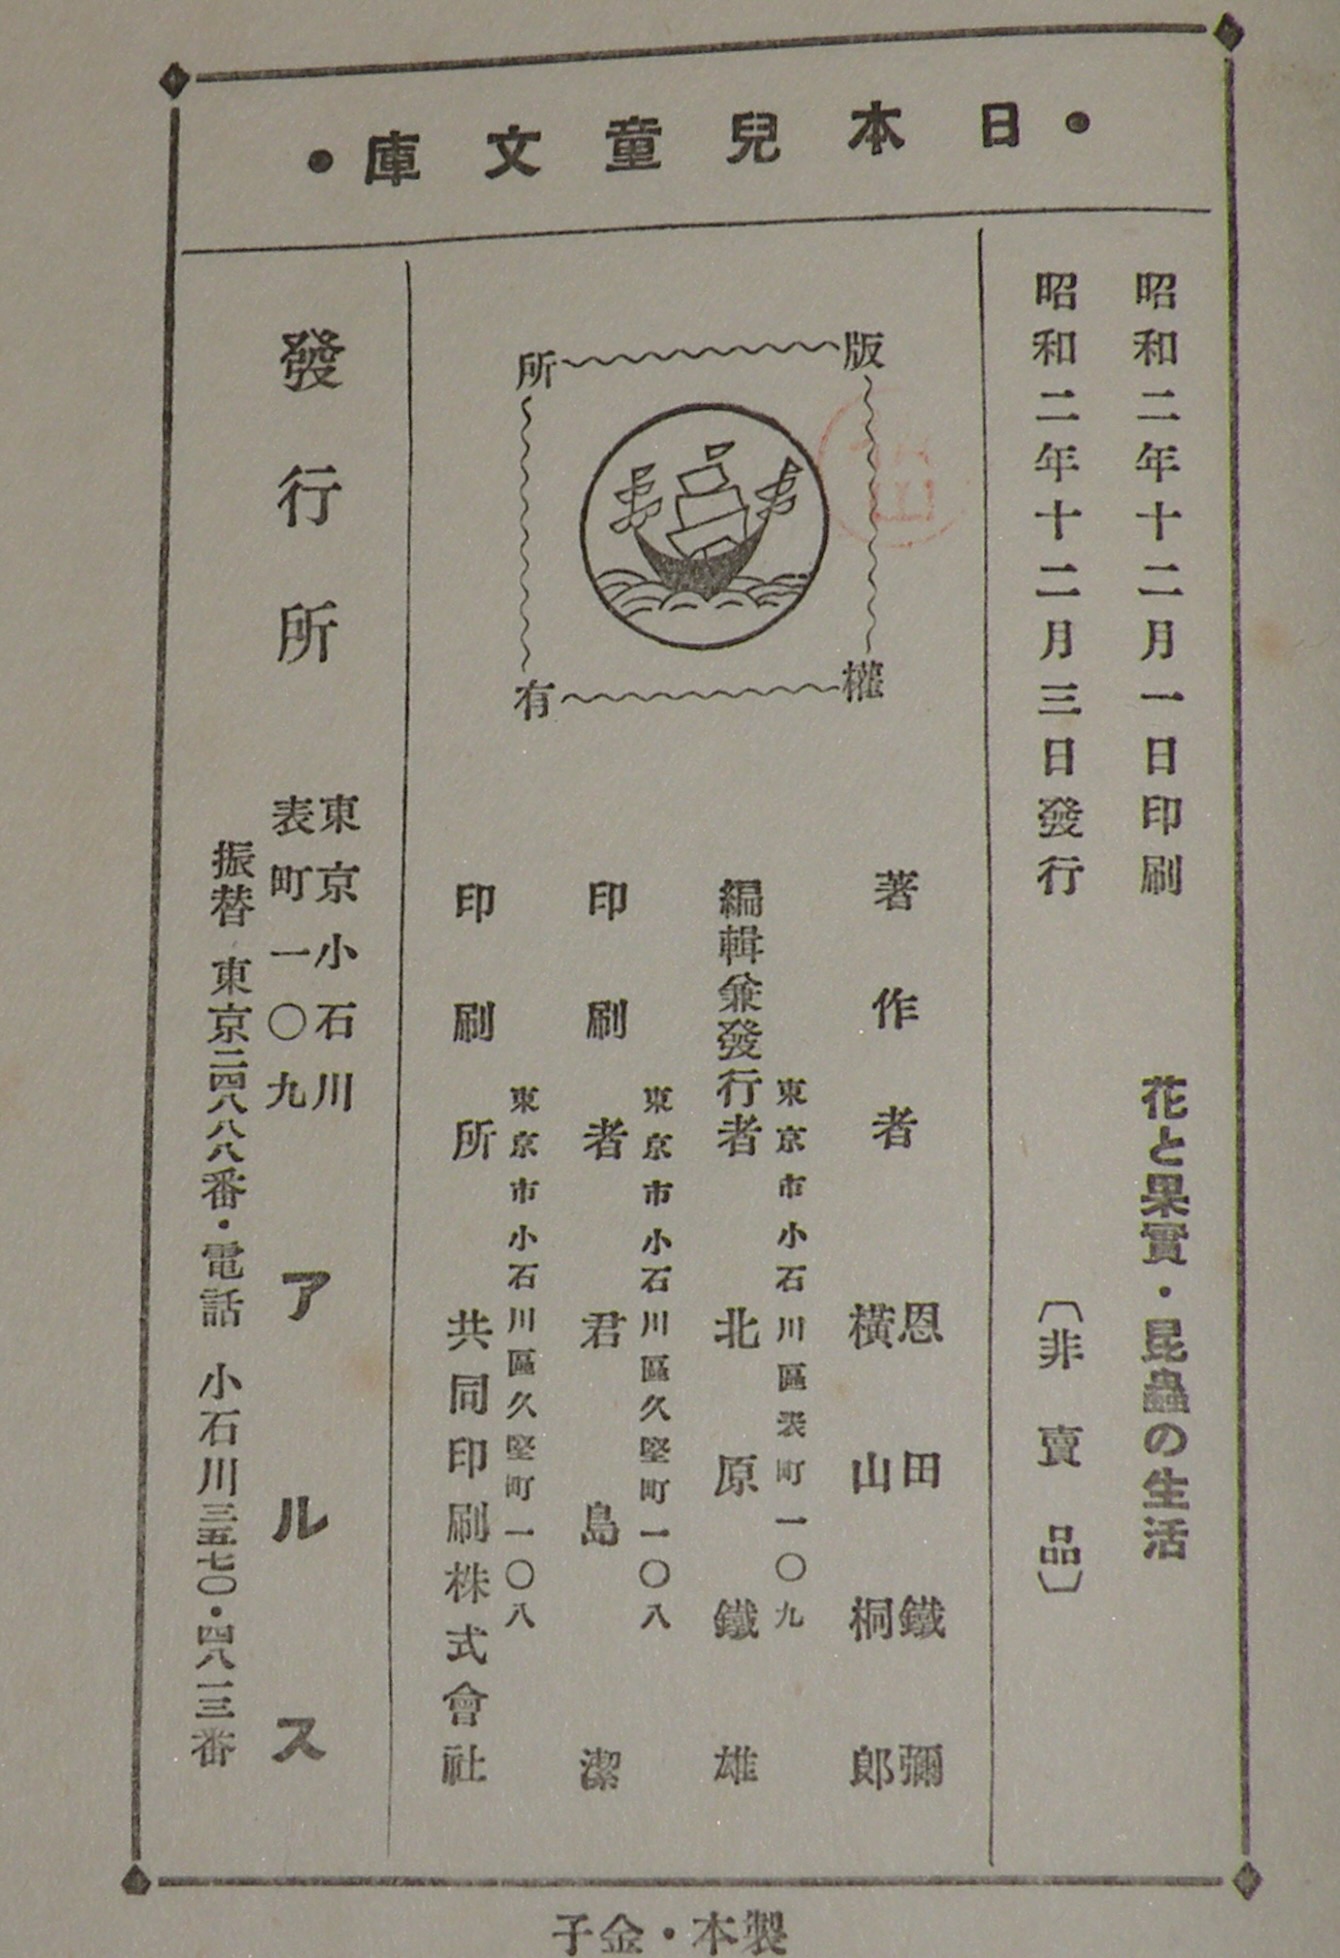 ・日本兒童文庫・
昭和二年十二月一日印刷
昭和二年十二月三日發行
花と果實・昆蟲の生活
〔非賣品〕
版權所有
著作者
恩田鐵彌
横山桐郎
東京市小石川區表町一〇九
編輯兼發行者 北原鐵雄
東京市小石川區久堅町一〇八
印刷者 君島潔
東京市小石川區久堅町一〇八
印刷所 共同印刷株式會社
發行所
東京小石川
表町一〇九
アルス
振替 東京二四八八八番・電話 小石川三五七〇・四八一三番
製本・金子